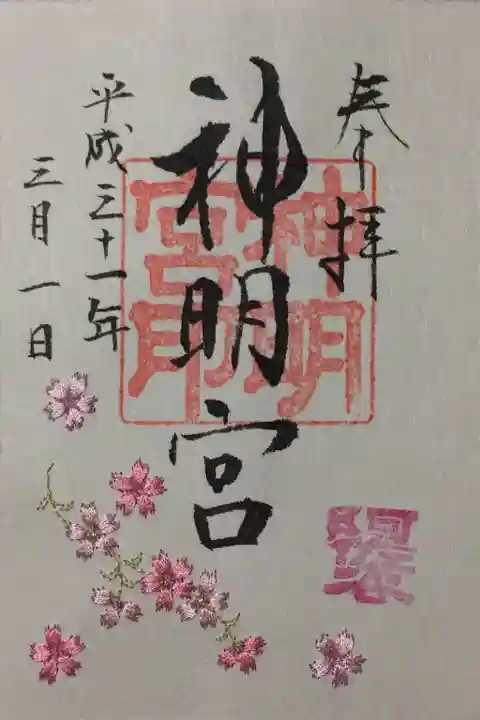 奉拝
神明宮
神明
宮印
平成三十一年
三月一日